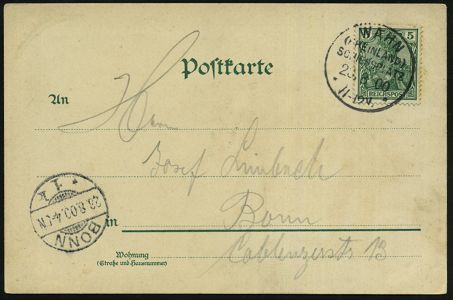 WAHN
(RHEINLAND)
SCHIESSPLATZ
23.8.00
11-12V.
5
REICHSPOST
Postkarte
An
Herrn
Josef Limbach
in Bonn
Wohnung
(Straße und Hausnummer)
Coblenzerstr 13
BONN
23.8.00.4-5N
* 1 k